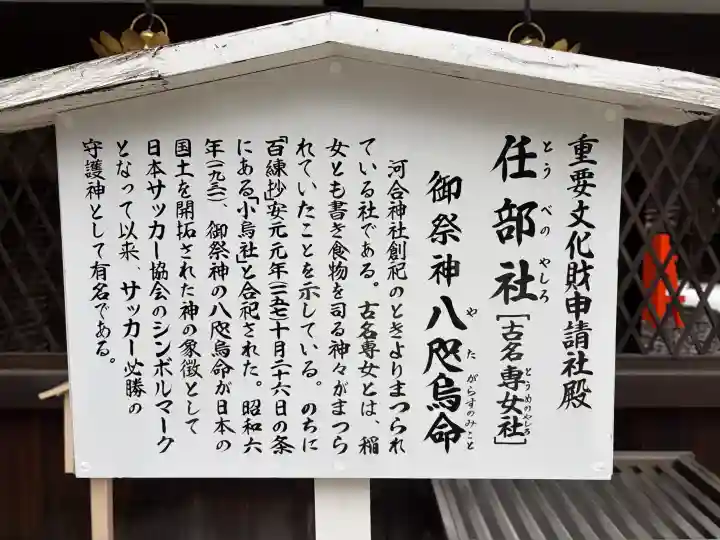 重要文化財申請社殿
とう べの やしろ
任部社
とうめのやしろ
[古名専女社]
御祭神 八咫烏命
や た がらすのみこと
河合神社創祀のときよりまつられ
ている社である。古名専女とは、稲
女とも書き食物を司る神々がまつら
れていたことを示している。のちに
「百練抄」安元元年(一一七五)十月二十六日の条
にある「小烏社」と合祀された。昭和六
年(一九三一)、御祭神の八咫烏命が日本の
国土を開拓された神の象徴として
日本サッカー協会のシンボルマーク
となって以来、サッカー必勝の
守護神として有名である。